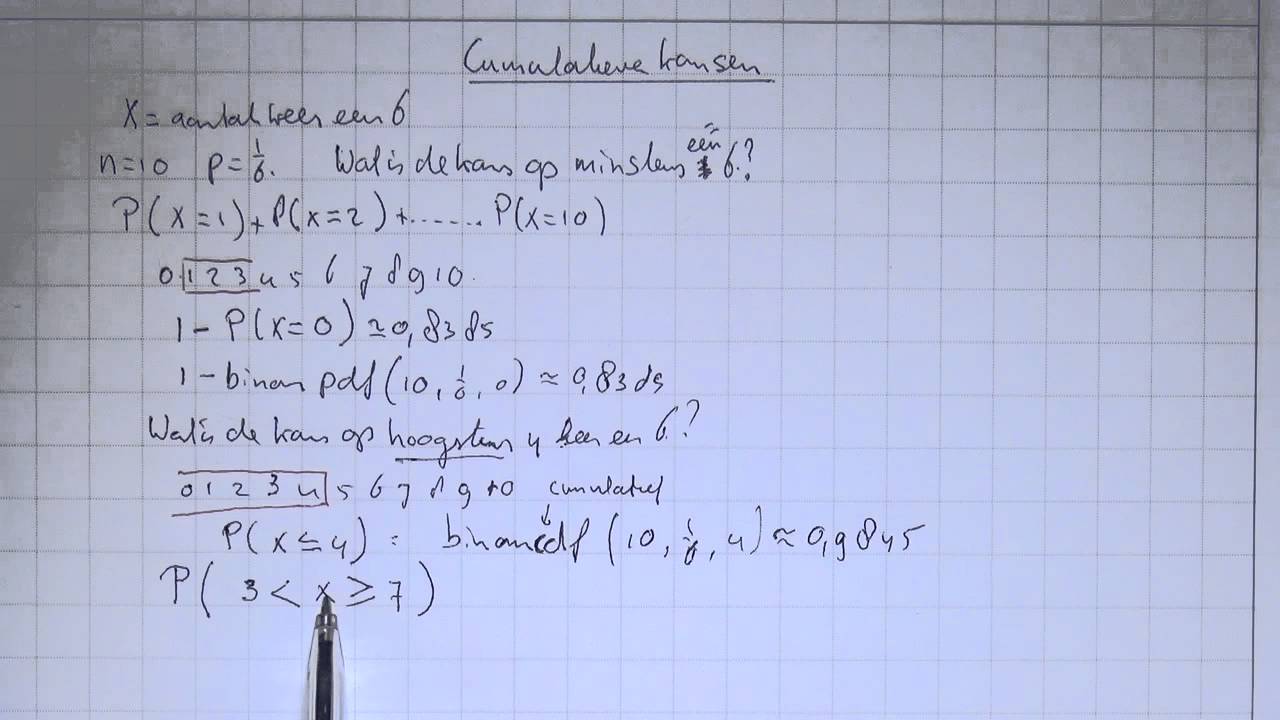 Cumulatieve kansen
X = aantal keer een 6
n=10 p=1/6. Wat is de kans op minstens één 6?
P(X=1)+P(X=2)+....... P(X=10)
0 1 2 3 4 5 6 7 8 9 10.
1-P(X=0) ≈0,8385
1-binompdf(10, 1/6, 0) ≈ 0,8385
Wat is de kans op hoogstens 4 keer een 6?
0 1 2 3 4 5 6 7 8 9 10 cumulatief
↓
P(X≤4) = binomcdf (10, 1/6, 4) ≈ 0,9845
P( 3 < X ≥ 7 )